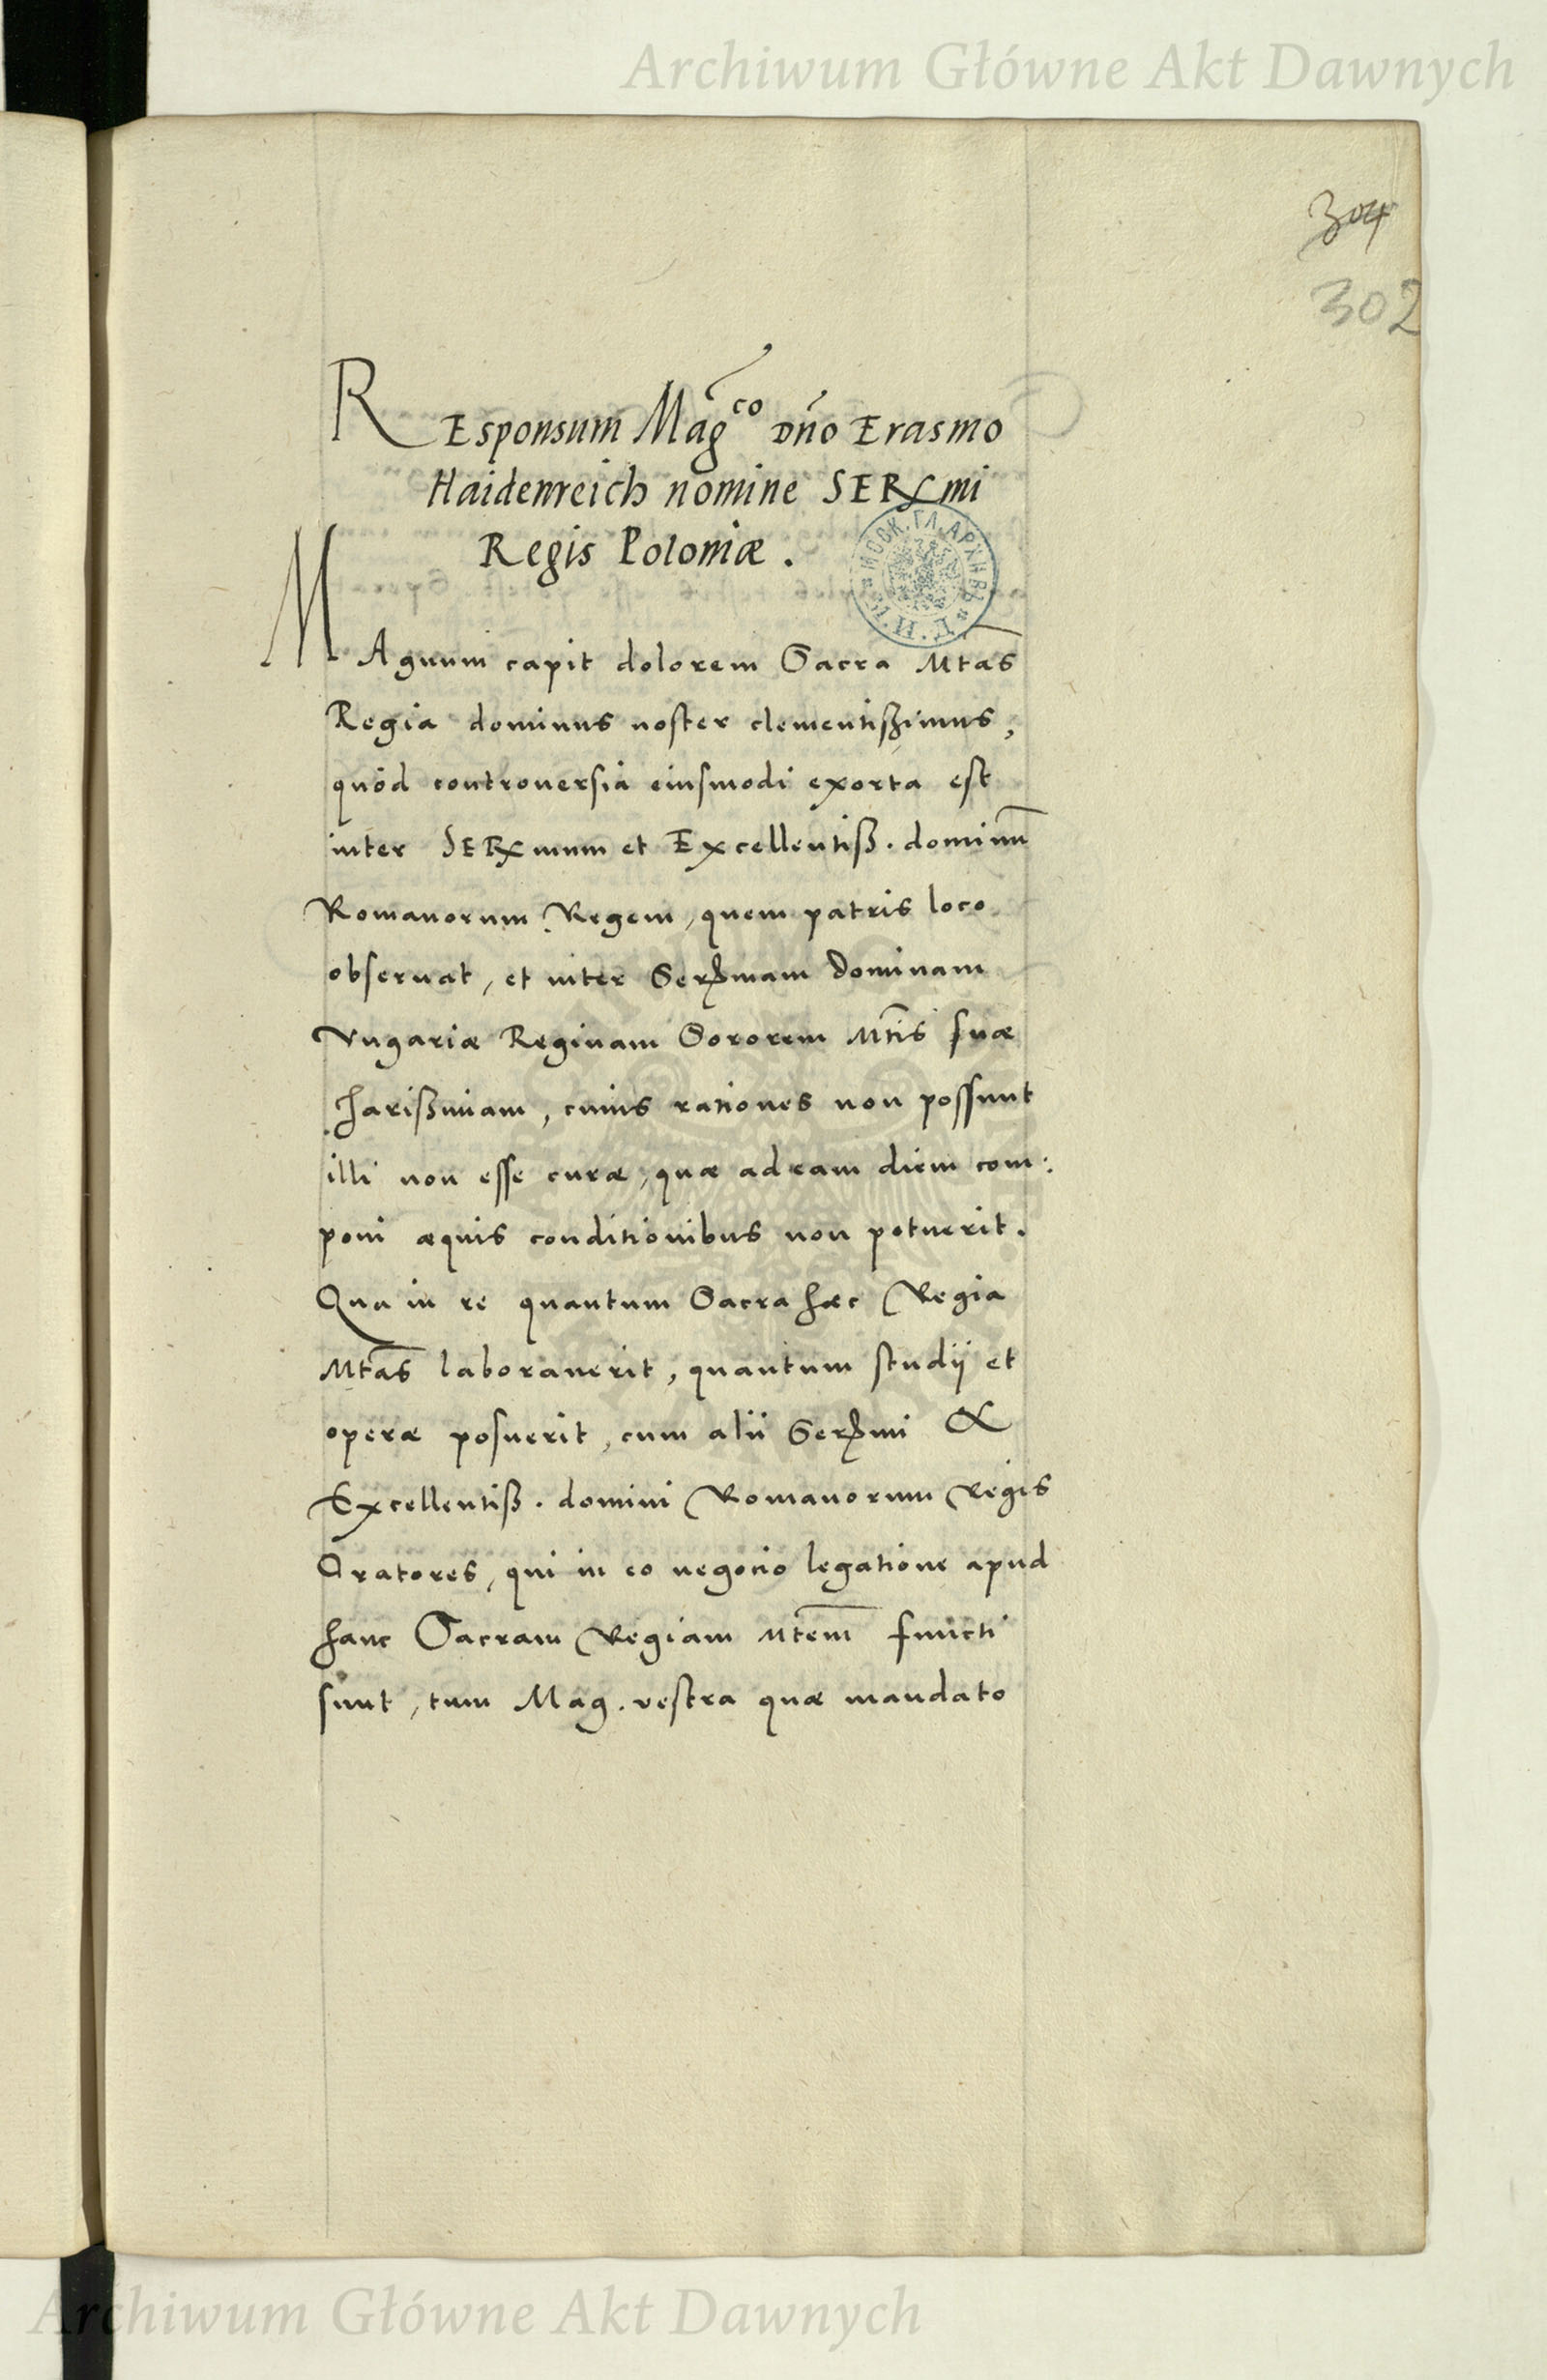 Archiwum Główne Akt Dawnych
304
302
REsponsum Mag^co Dño Erasmo
Haidenreich nomine SERmi
Regis Poloniæ.
MAgnum capit dolorem Sacra Mtas
Regia dominus noster clementißimus,
quòd controuersia eiusmodi exorta est
inter SERmum et Excellentiß. dominū
Romanorum Regem, quem patris loco
obseruat, et inter Serᵐmam Dominam
Vngariæ Reginam Sororem Mtis suæ
charißimam, cuius rationes non possunt
illi non esse curæ, quæ ad eam diem com:
poni æquis conditionibus non potuerit.
Qua in re quantum Sacra hæc Regia
Mtas laborauerit, quantum studij et
operæ posuerit, cum alii Sermi &
Excellentiß. domini Romanorum Regis
Oratores, qui in eo negocio legatione apud
hanc Sacram Regiam Mtem functi
sunt, tum Mag. vestra quæ mandato
Archiwum Główne Akt Dawnych